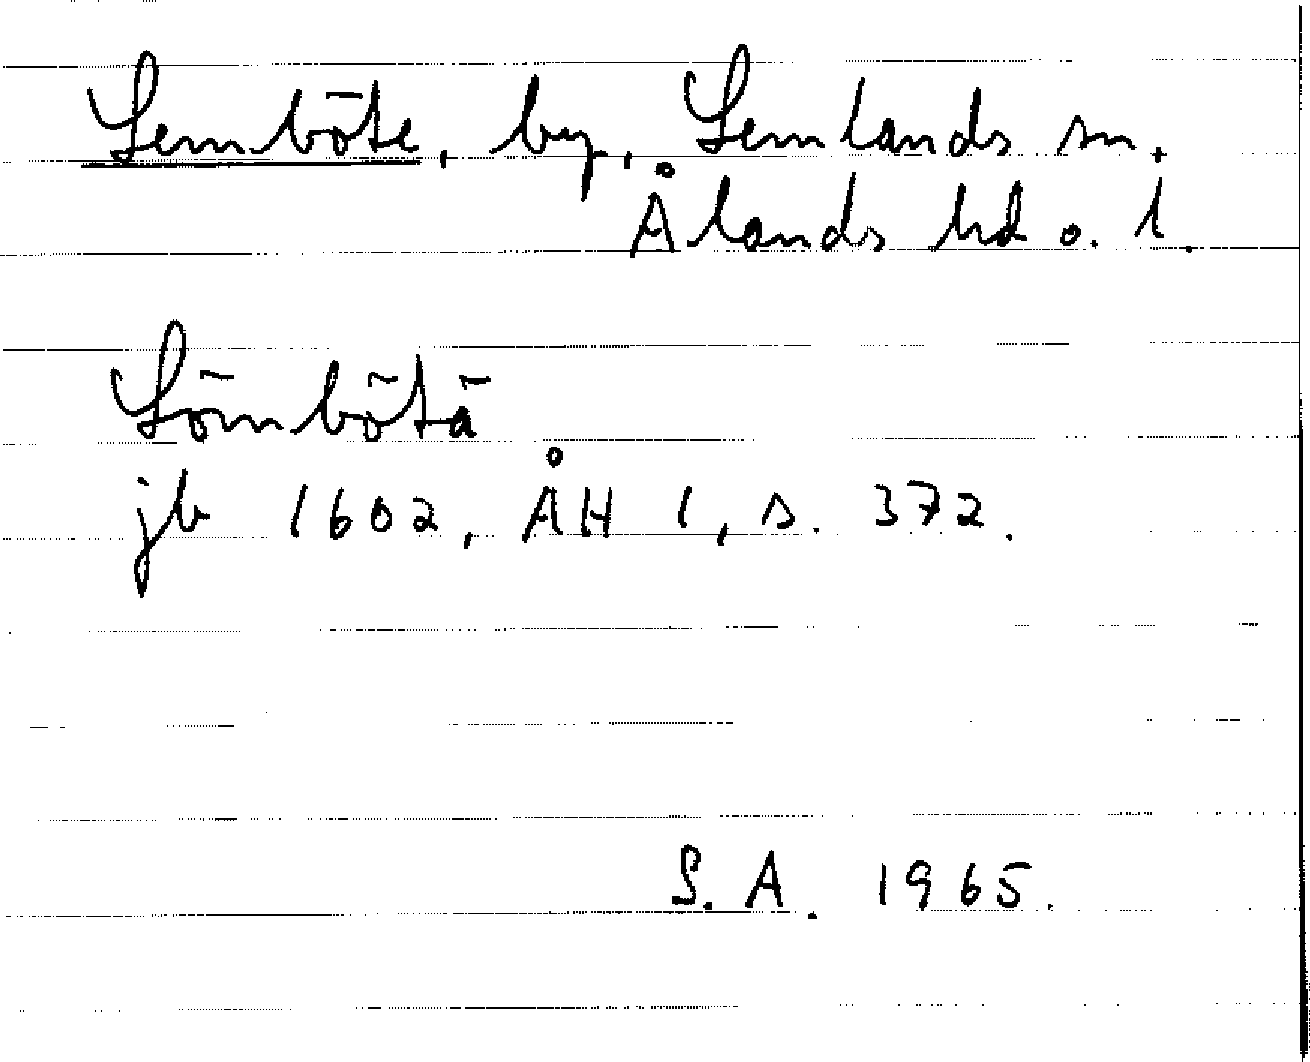 Lemböte, by, Lemlands sn.
Ålands hd o. l.
Lömbötä
jb 1602, ÅH 1, s. 372.
S. A. 1965.